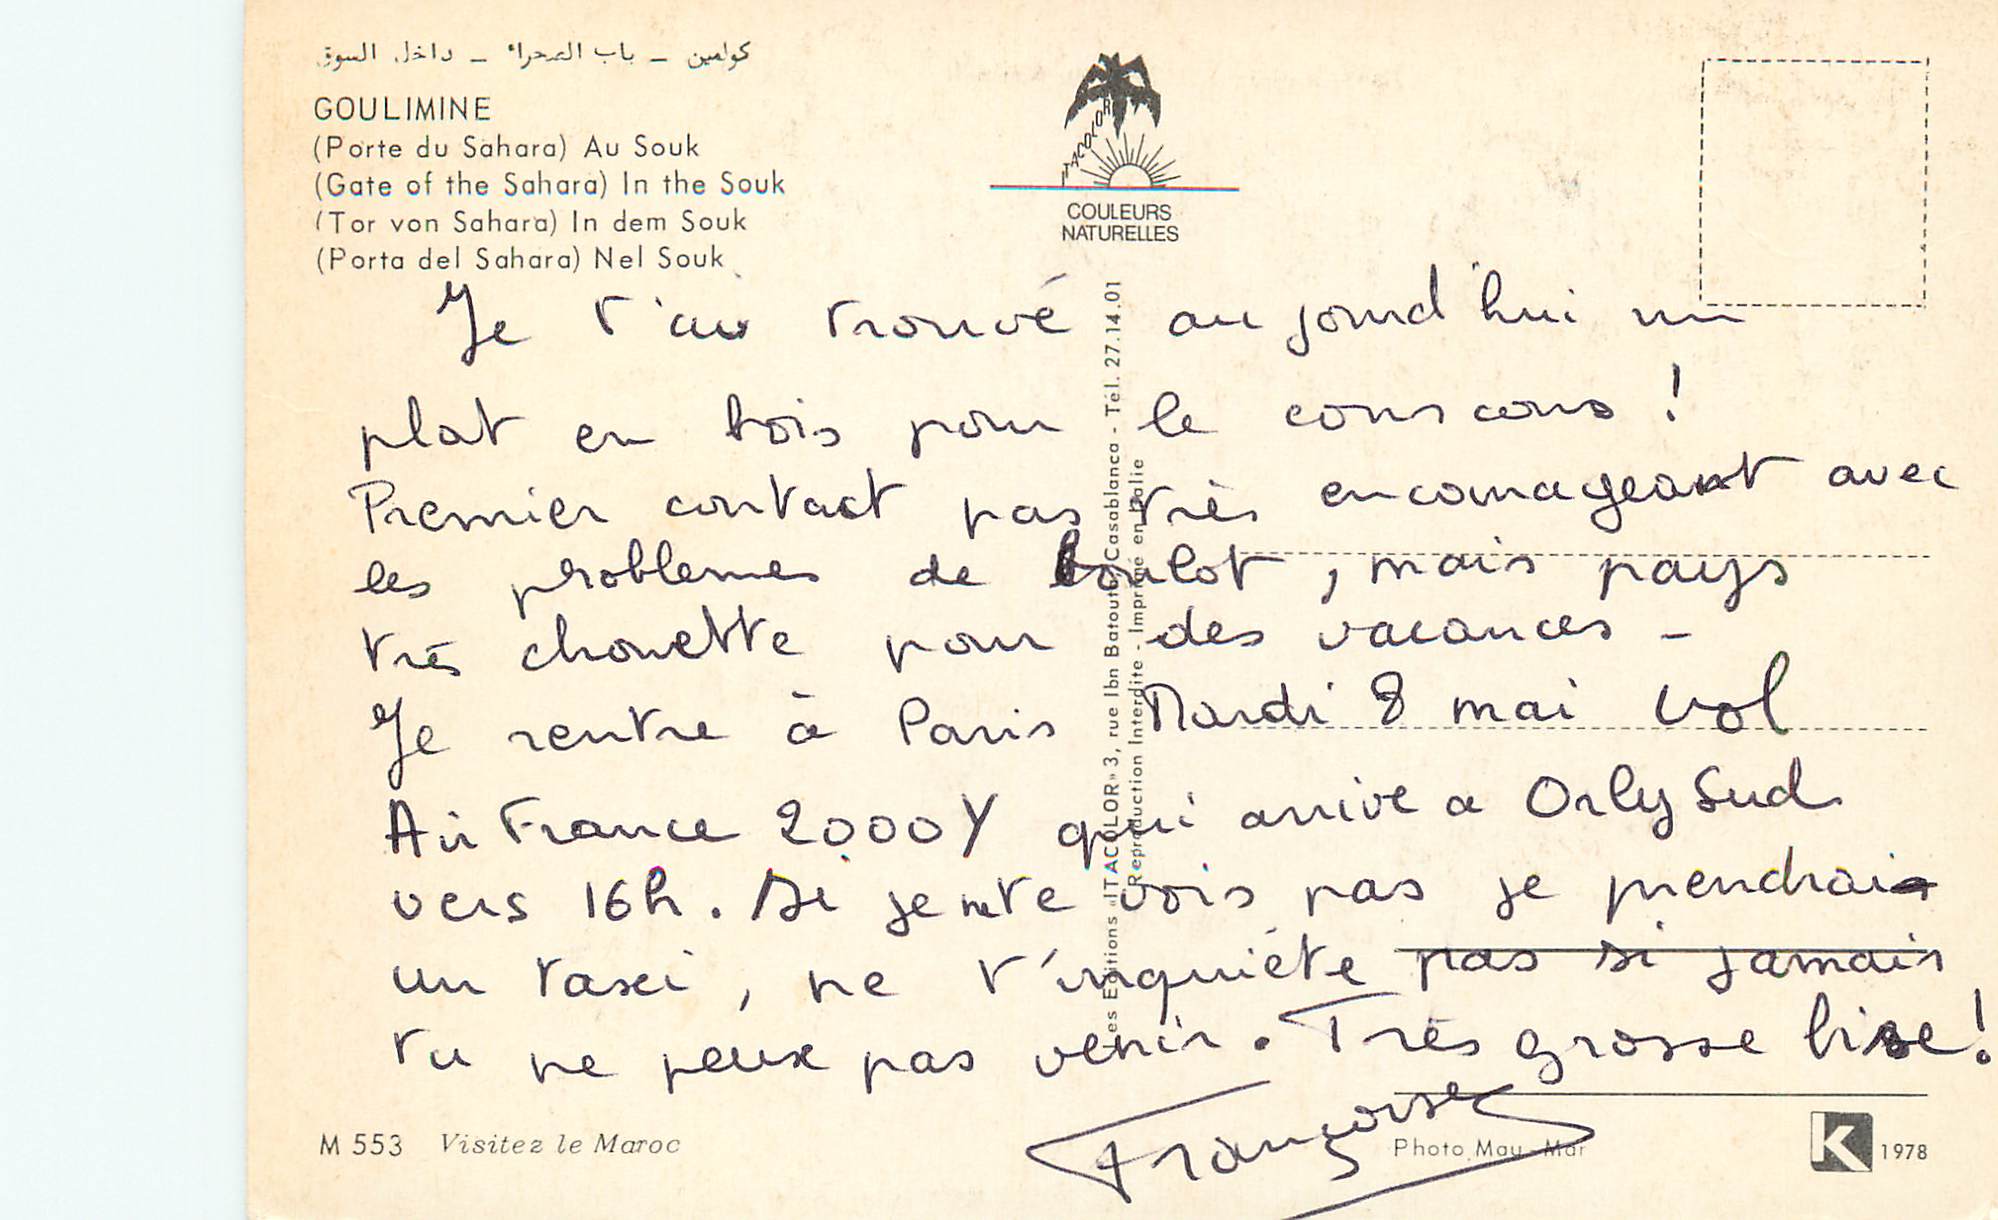 كولمين – باب الصحراء – داخل السوق
GOULIMINE
(Porte du Sahara) Au Souk
(Gate of the Sahara) In the Souk
(Tor von Sahara) In dem Souk
(Porta del Sahara) Nel Souk
ITACOLOR
COULEURS
NATURELLES
Je t'ai trouvé aujourd'hui un
plat en bois pour le couscous !
Premier contact pas très encourageant avec
les problemes de boulot, mais pays
très chouette pour des vacances -
Je rentre à Paris Mardi 8 mai vol
Air France 2000Y qui arrive a Orly Sud
vers 16h. Si je ne te vois pas je prendrai
un taxi, ne t'inquiéte pas si jamais
tu ne peux pas venir. Très grosse bise!
Françoise
Les Editions «ITACOLOR» 3, rue Ibn Batouta Casablanca - Tél. 27.14.01
Reproduction Interdite - Imprimé en Italie
M 553 Visitez le Maroc
Photo May-Mar
K 1978